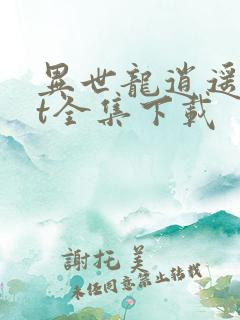 異世龍逍遥
t全集下载
謝托美
未任同意禁止转载